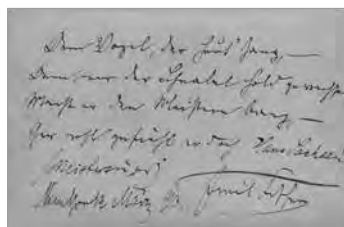 Dem Vogel, der heut' sang, —
Dem war der Schnabel hold gewachsen
Macht er den Meistern bang, —
Gar wohl gefiel er doch Hans Sachsen
Meistersinger
New York März
Emil